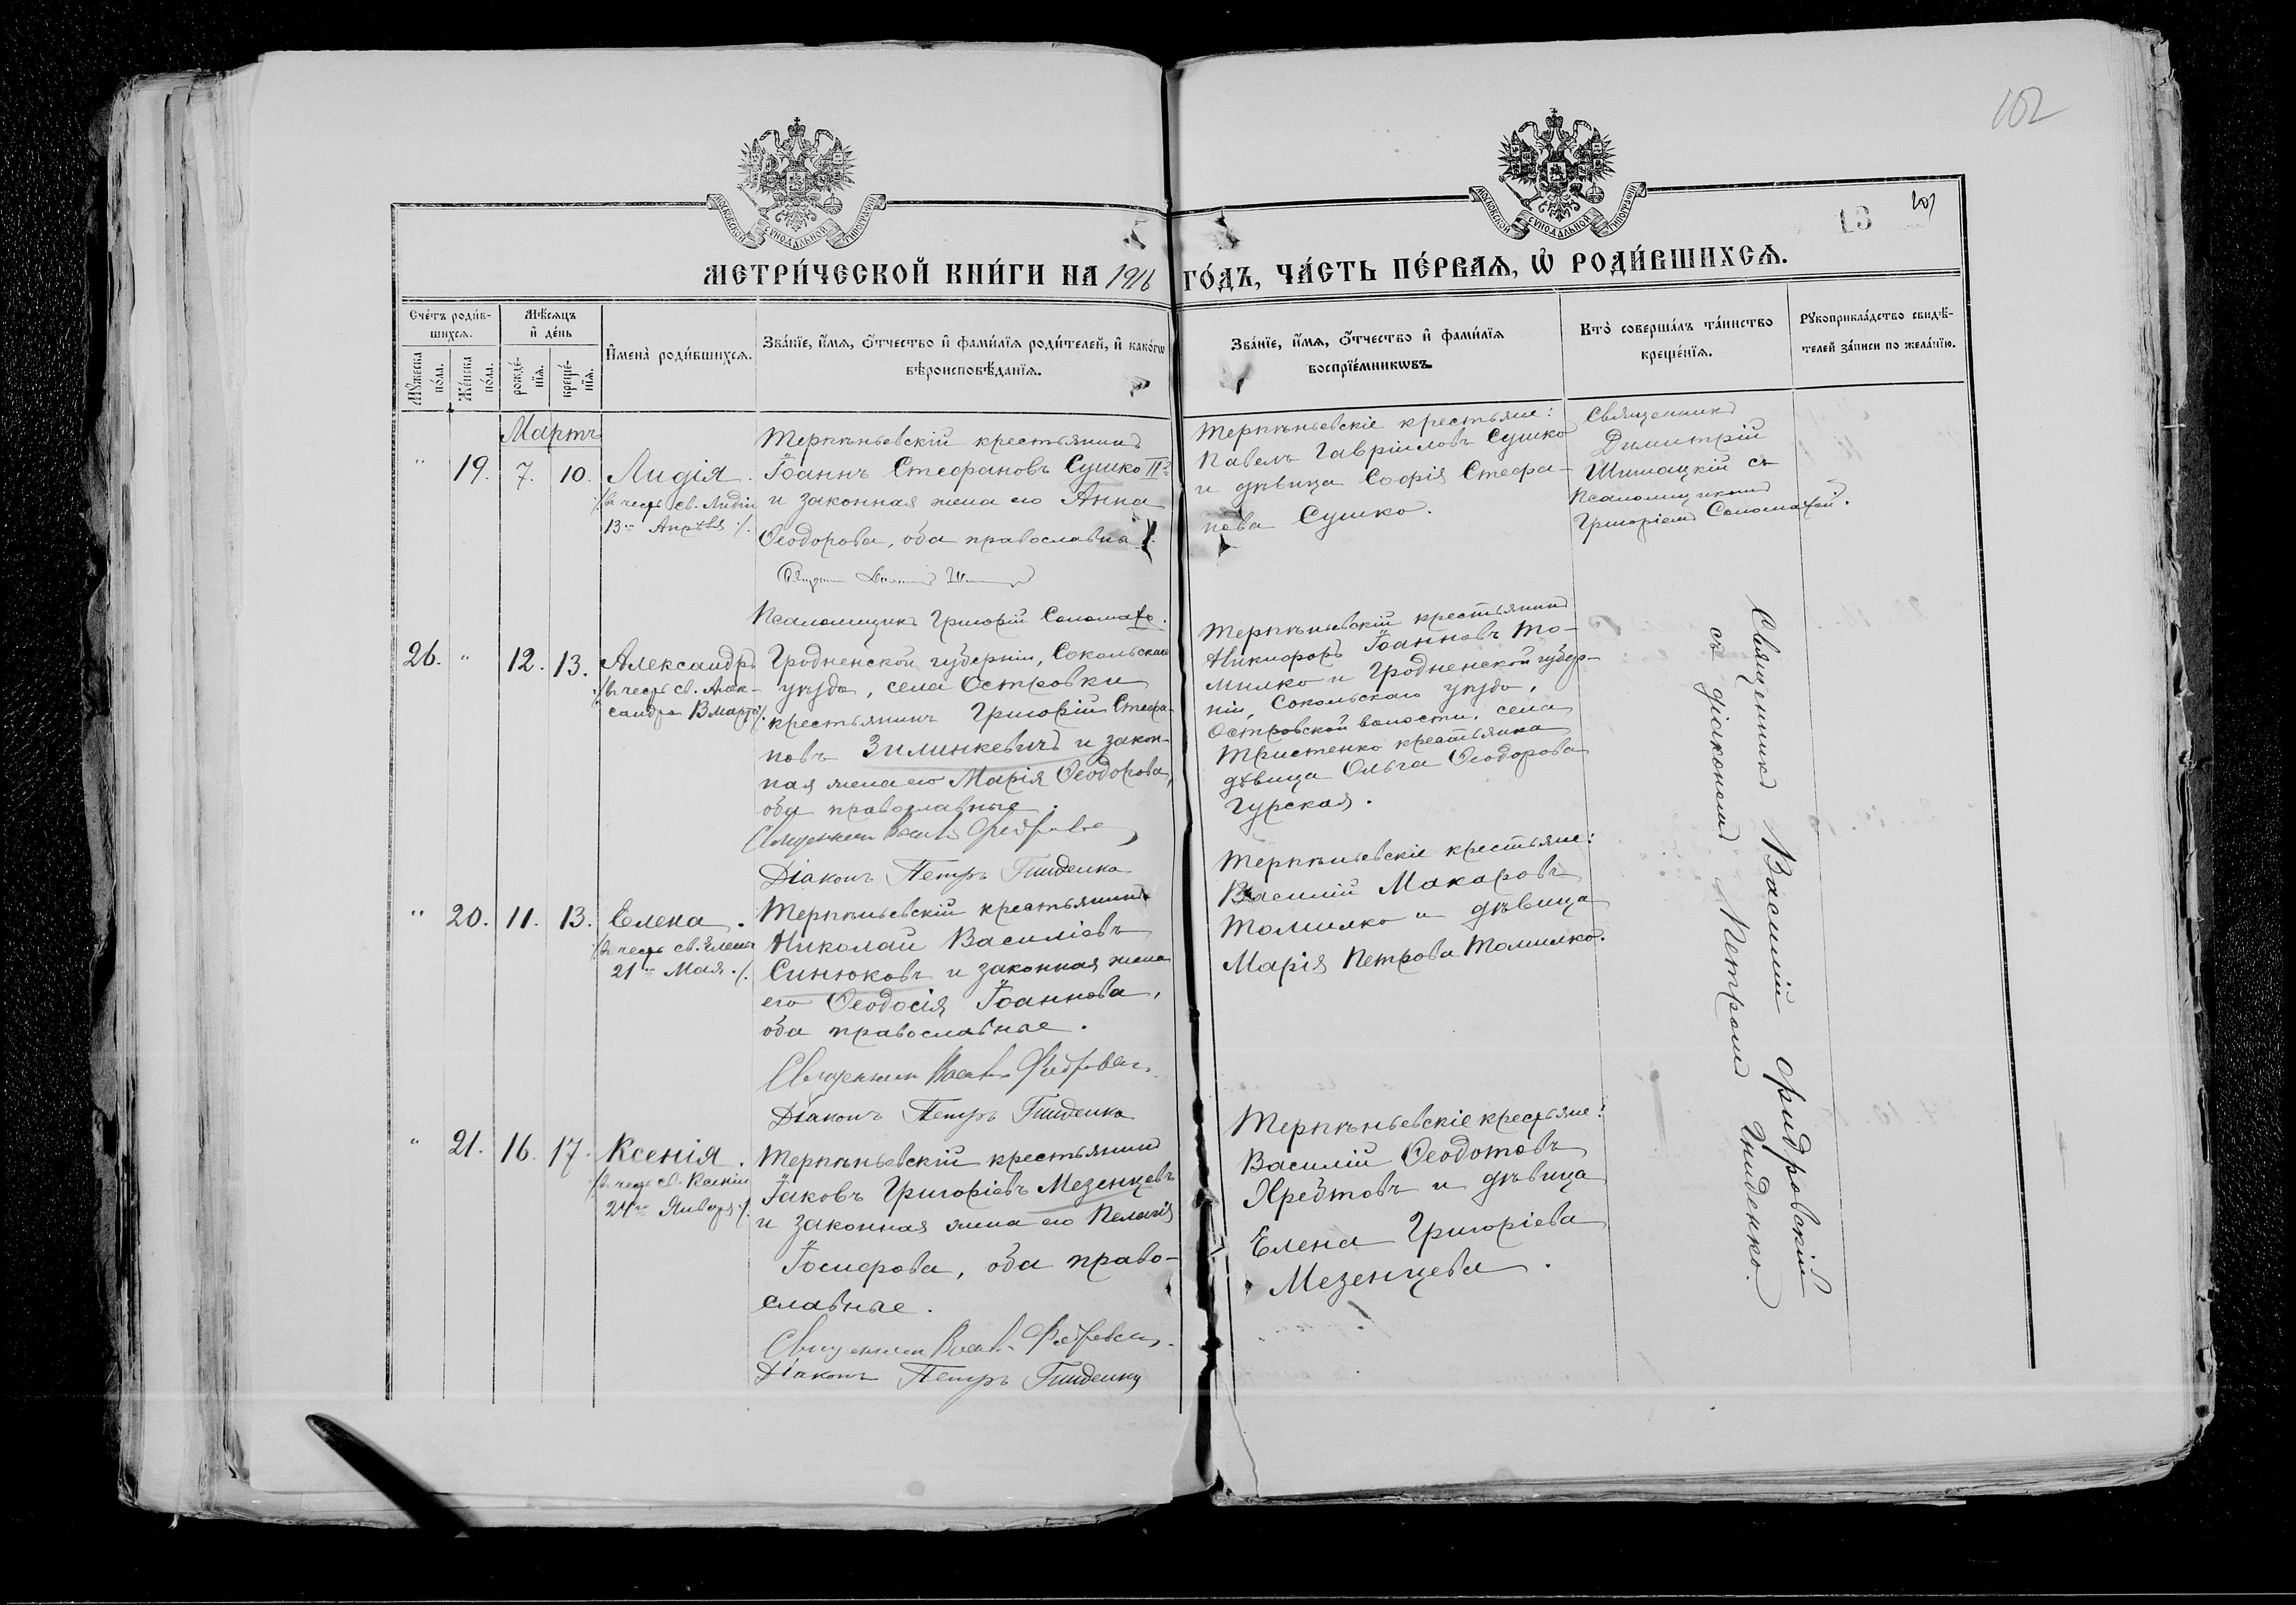 102
МОСКОВСКОЙ СѴНОДАЛЬНОЙ ТИПОГРАФІИ
МОСКОВСКОЙ СѴНОДАЛЬНОЙ ТИПОГРАФІИ
13
МЕТРИ́ЧЕСКОЙ КНИ́ГИ НА 1916 ГО́ДЪ, ЧА́СТЬ ПЕ́РВАѦ, Ѡ РОДИ́ВШИХСѦ.
Сче́тъ роди́в-
шихсѧ.
Мꙋжеска по́ла.
Же́нска по́ла.
Мѣ́сѧцъ
и҆ де́нь
рожде́-
нїѧ.
креще́-
нїѧ.
И҆мена̀ роди́вшихсѧ.
Зва́нїе, и҆́мѧ, ѻ҆́тчество и҆ фами́лїѧ роди́телей, и҆ како́гѡ
вѣроисповѣ́данїѧ.
Зва́нїе, и҆́мѧ, ѻ҆́тчество и҆ фами́лїѧ
воспрїе́мникѡвъ.
Кто̀ соверша́лъ та́инство
креще́нїѧ.
Рꙋкоприкла́дство свидѣ́-
телей за́писи по жела́нїю.
Мартъ
" 19. 7. 10. Лидія.
/въ честь св. Лидіи
13го Апрѣля ./.
Терпѣньевскій крестьянинъ
Іоаннъ Стефановъ Сушко II-й
и законная жена его Анна
Ѳеодорова, оба православна
Псаломщикъ Григорій Соломаха.
Терпѣньевскіе крестьяне:
Павелъ Гавріиловъ Сушко
и дѣвица Софія Стефа-
нова Сушко.
Священникъ
Димитрій
Шимацкій съ
Псаломщикомъ
Григоріемъ Соломахой.
26. " 12. 13. Александръ
/въ честь св. Алек-
сандра 13 марта/.
Гродненской губерніи, Сокольскаго
уѣзда, села Островки
крестьянинъ Григорій Стефа-
новъ Зилинкевичъ и закон-
ная жена его Марія Ѳеодорова,
оба православные.
Діаконъ Петръ Гниденко
Терпѣньевскій крестьянинъ
Никифоръ Іоанновъ То-
милко и Гродненской губер-
ніи, Сокольскаго уѣзда,
Островской волости, села
Тристенко крестьянка
дѣвица Ольга Ѳеодорова
Гурская.
Священникъ Василій Фидровскій
съ діакономъ Петромъ Гниденко.
" 20. 11. 13. Елена.
/въ честь св. Елены
21го Мая ./.
Терпѣньевскій крестьянинъ
Николай Василіевъ
Синюковъ и законная жена
его Ѳеодосія Іоаннова,
оба православные.
Діаконъ Петръ Гниденко
Терпѣньевскіе крестьяне:
Василій Макаровъ
Томилко и дѣвица
Марія Петрова Томилко.
" 21. 16. 17. Ксенія.
/въ честь св. Ксеніи
24го Января/.
Терпѣньевскій крестьянинъ
Іаковъ Григоріевъ Мезенцевъ
и законная жена его Пелагія
Іосифова, оба право-
славные.
Діаконъ Петръ Гниденко
Терпѣньевскіе крестьяне:
Василій Ѳеодотовъ
Хребтовъ и дѣвица
Елена Григоріева
Мезенцева.